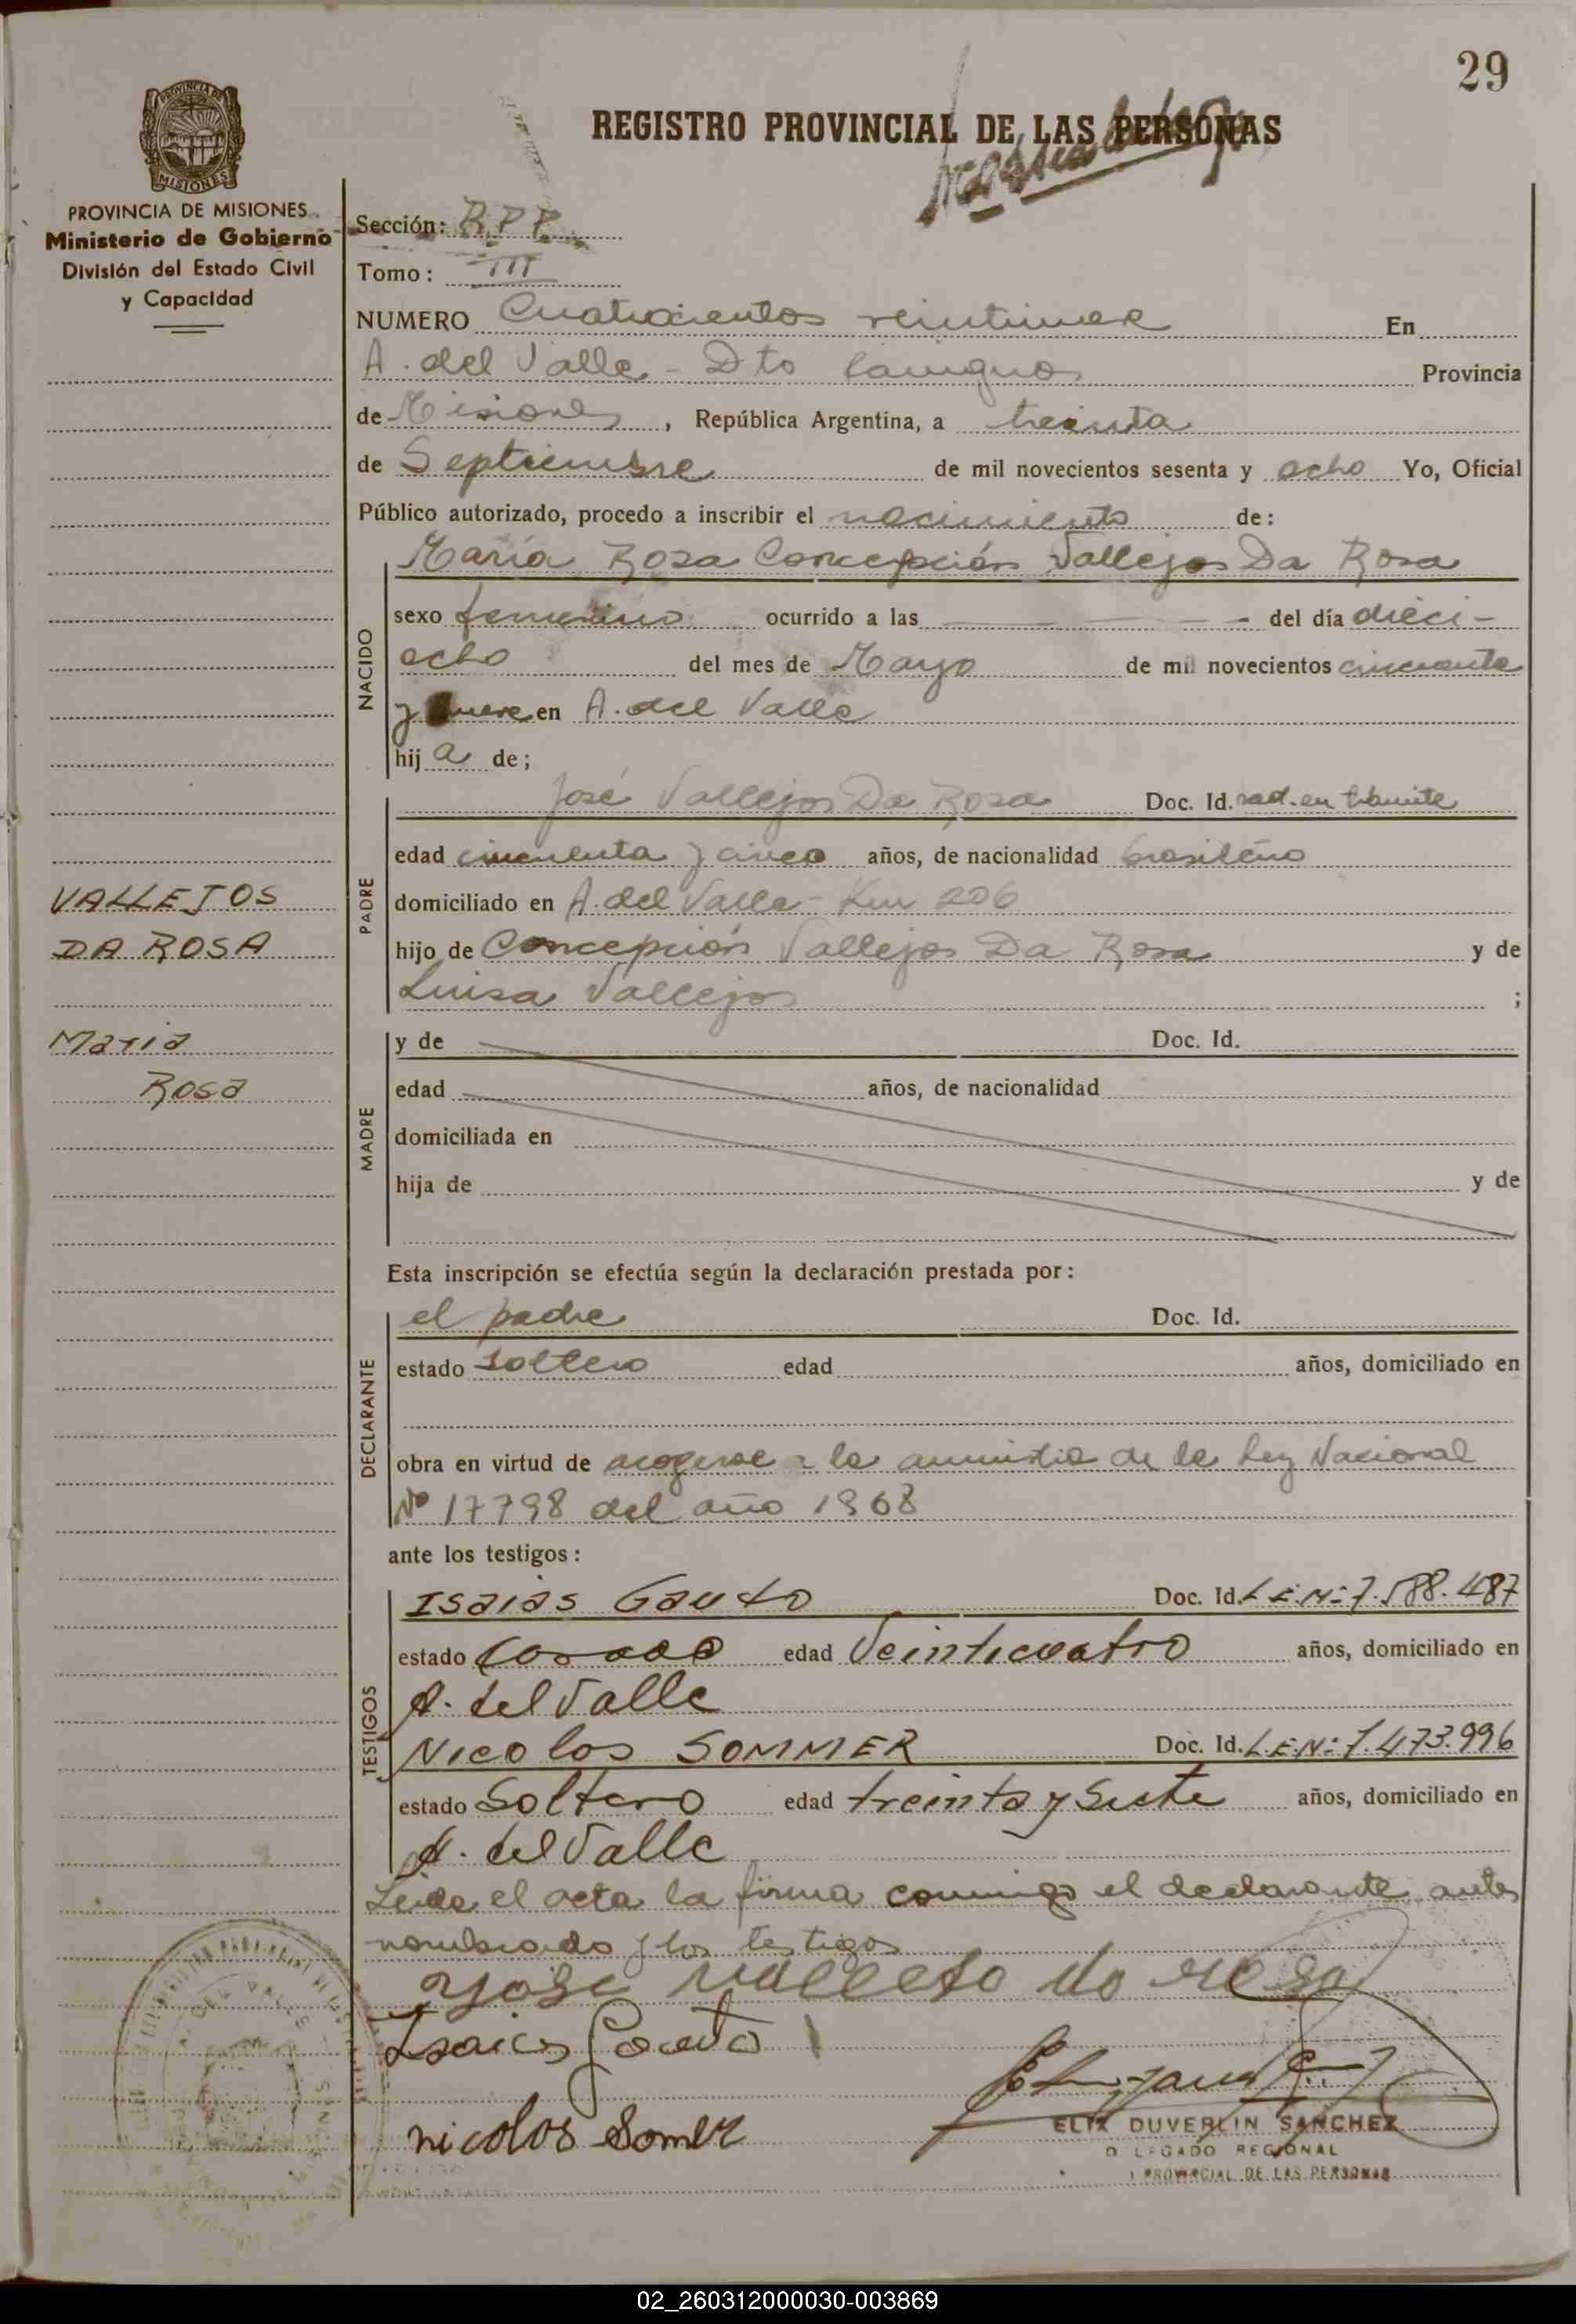 29
REGISTRO PROVINCIAL DE LAS PERSONAS
PROVINCIA DE
MISIONES
PROVINCIA DE MISIONES
Ministerio de Gobierno
División del Estado Civil
y Capacidad
Sección: R.P.P.
Tomo: III
NUMERO Cuatrocientos veintinueve En
A. del Valle - Dto Cainguas Provincia
de Misiones, República Argentina, a treinta
de Septiembre de mil novecientos sesenta y ocho Yo, Oficial
Público autorizado, procedo a inscribir el nacimiento de:
NACIDO
María Rosa Concepción Vallejos Da Rosa
sexo femenino ocurrido a las — — — del día dieci-
ocho del mes de Mayo de mil novecientos cincuenta
y nueve en A. del Valle
hija de;
PADRE
José Vallejos Da Rosa Doc. Id. rad. en trámite
edad cincuenta y cinco años, de nacionalidad brasileño
domiciliado en A. del Valle - Km 206
hijo de Concepción Vallejos Da Rosa y de
Luisa Vallejos ;
VALLEJOS
DA ROSA
Maria
Rosa
MADRE
y de Doc. Id.
edad años, de nacionalidad
domiciliada en
hija de y de
Esta inscripción se efectúa según la declaración prestada por:
DECLARANTE
el padre Doc. Id.
estado soltero edad años, domiciliado en
obra en virtud de acogerse a la amnistia de la Ley Nacional
Nº 17798 del año 1968
ante los testigos:
TESTIGOS
Isaias Gauto Doc. Id. L.E.Nº 7.588.487
estado edad Veinticuatro años, domiciliado en
A. del Valle
Nicolas SOMMER Doc. Id. L.E.Nº 7.473.996
estado Soltero edad treinta y Siete años, domiciliado en
A. del Valle
Leida el acta la firma conmigo el declarante antes
nombrado y los testigos
Isaias Gauto
nicolos Somer
ELIX DUVERLIN SANCHEZ
D LEGADO REGIONAL
PROVINCIAL DE LAS PERSONAS
02_260312000030-003869